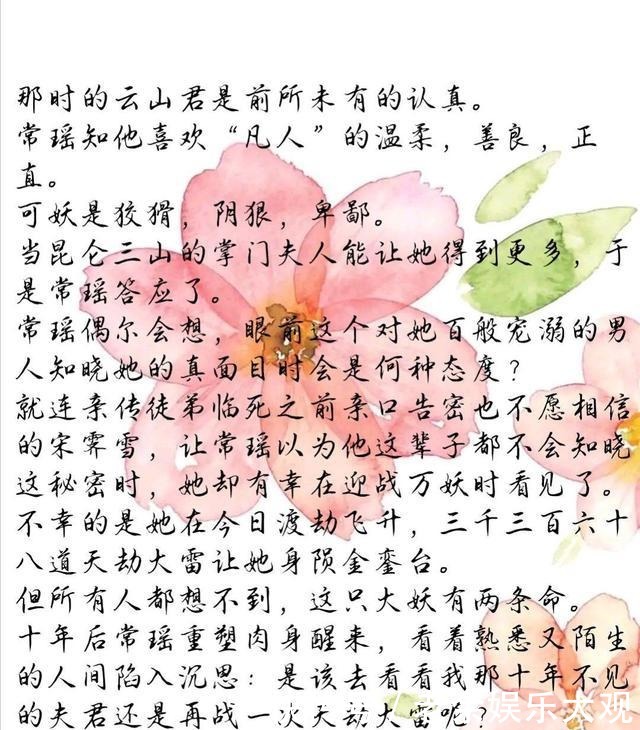 那时的云山君是前所未有的认真。
常瑶知他喜欢“凡人”的温柔，善良，正
直。
可妖是狡猾，阴狠，卑鄙。
当昆仑三山的掌门夫人能让她得到更多，于
是常瑶答应了。
常瑶偶尔会想，眼前这个对她百般宠溺的男
人知晓她的真面目时会是何种态度？
就连亲传徒弟临死之前亲口告密也不愿相信
的宋霁雪，让常瑶以为他这辈子都不会知晓
这秘密时，她却有幸在迎战万妖时看见了。
不幸的是她在今日渡劫飞升，三千三百六十
八道天劫大雷让她身陨金銮台。
但所有人都想不到，这只大妖有两条命。
十年后常瑶重塑肉身醒来，看着熟悉又陌生
的人间陷入沉思：是该去看看我那十年不见
的夫君还是再战一次天劫大雷呢？
娱乐大观